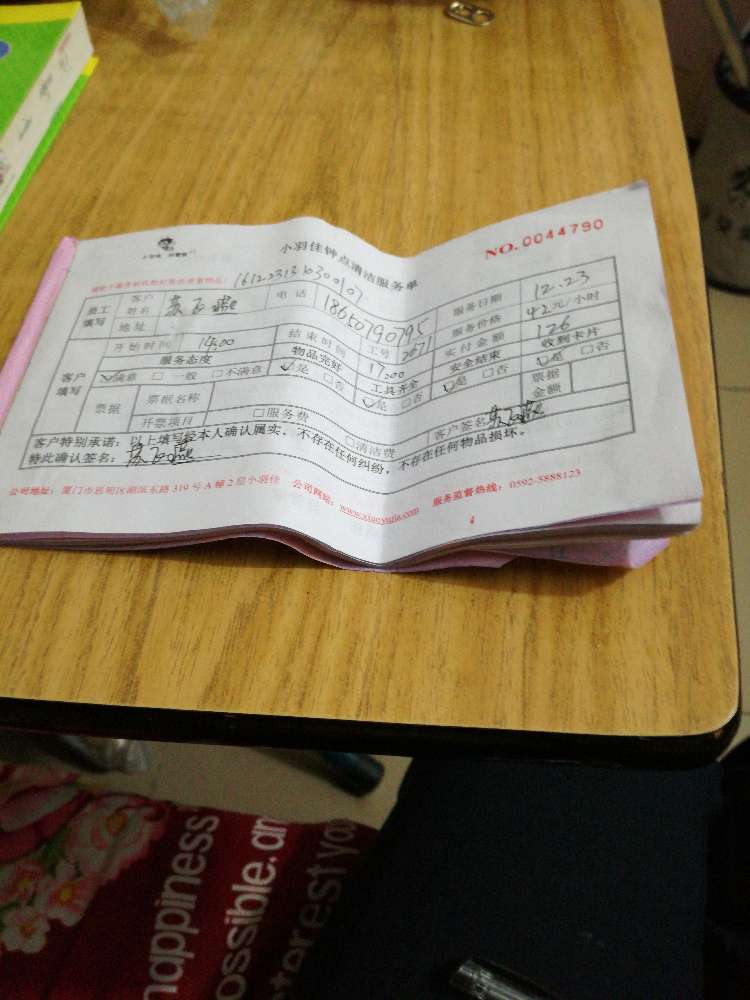 小羽佳钟点清洁服务单
NO.0044790
1612231310300107
员工填写 客户姓名 电话 18650790795 服务日期 12.23
地址 工号 2671 服务价格 42元/小时
开始时间 14:00 结束时间 17:00 实付金额 126
客户填写 服务态度 物品完好 工具齐全 安全结束 收到卡片
☑满意 □一般 □不满意 ☑是 □否 ☑是 □否 ☑是 □否 ☑是 □否
票据 票据名称 票据金额
开票项目 □服务费 □清洁费 客户签名
客户特别承诺：以上填写经本人确认属实，不存在任何纠纷，不存在任何物品损坏。
特此确认签名：
公司地址：厦门市思明区湖滨东路319号A幢2层小羽佳 公司网站：www.xiaoyujia.com 服务监督热线：0592-5888123
4
happiness
possible, an
terest yo